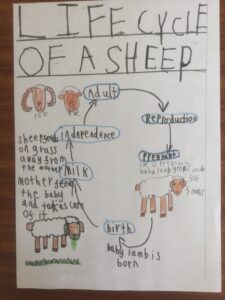 LIFE CYCLE
OF A SHEEP
Adult
Reproduction
Pregnant
baby lamb
birth
baby lamb is
born
Milk
mother feeds
the baby
and takes care
of it
independence
sheep
on grass
away from
the mother